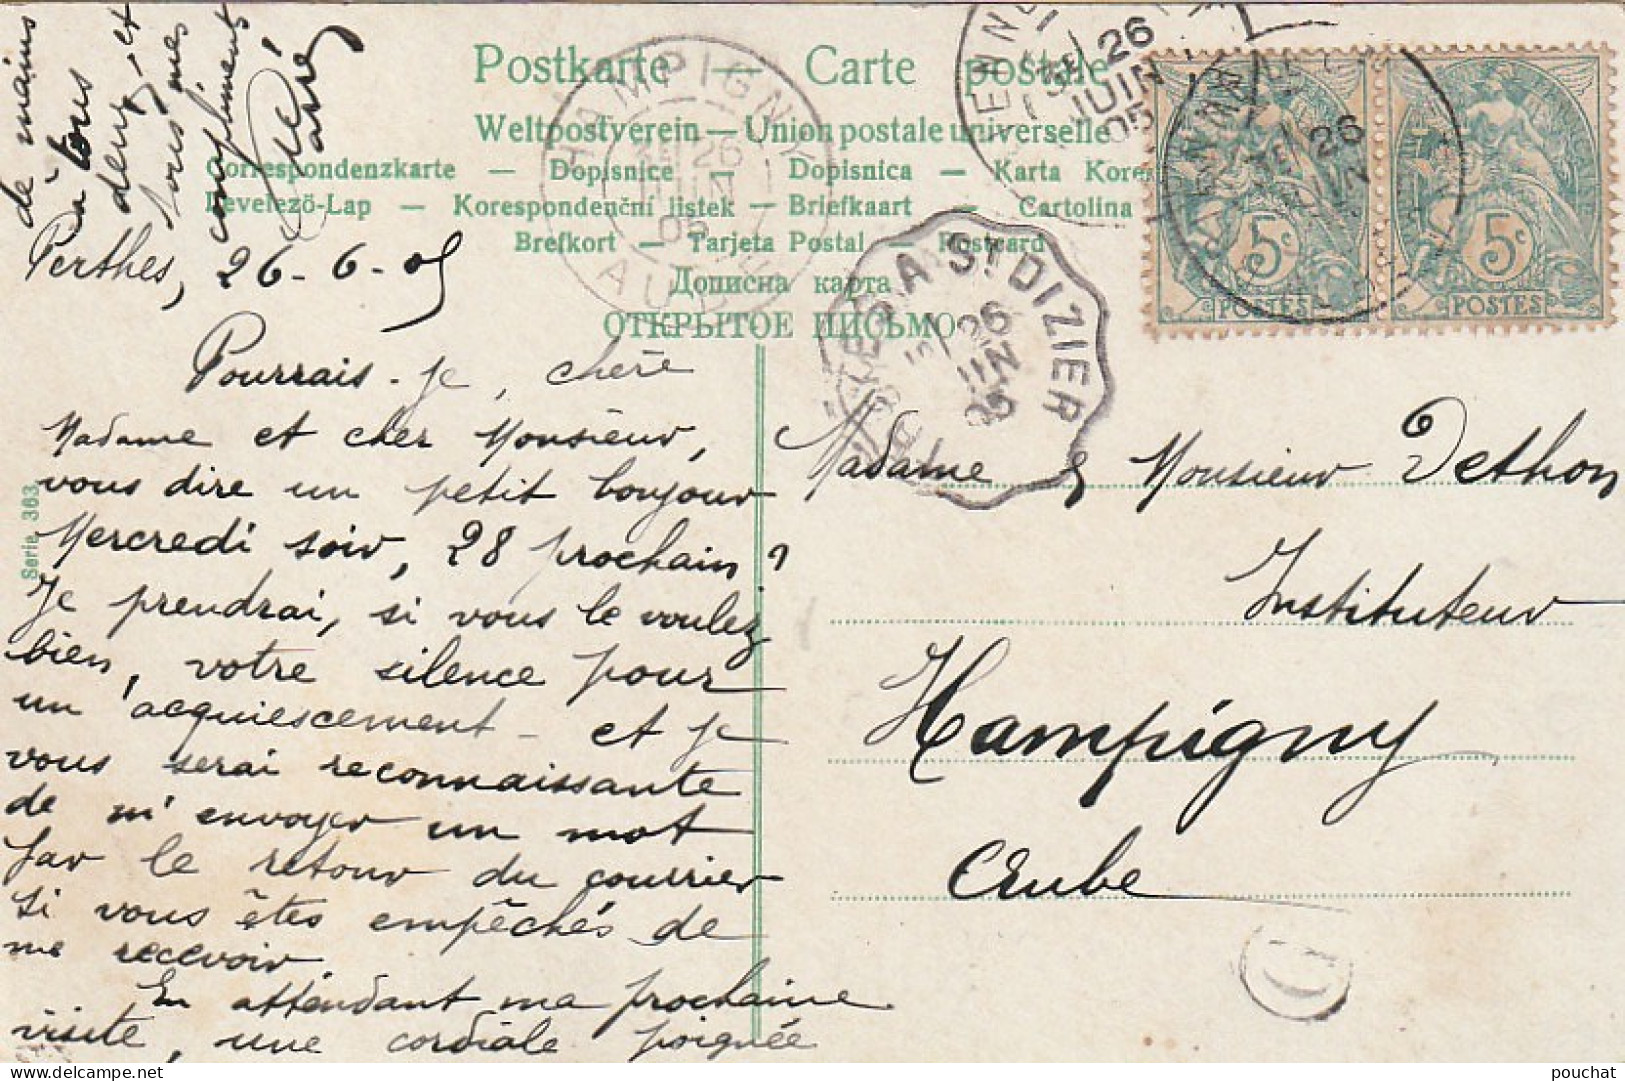 Postkarte — Carte postale
Weltpostverein — Union postale universelle
Correspondenzkarte — Dopisnice — Dopisnica — Karta Kores
Levelezö-Lap — Korespondenční listek — Briefkaart — Cartolina
Brefkort — Tarjeta Postal — Postcard
Дописна карта
ОТКРЫТОЕ ПИСЬМО
HAMPIGNY
26
JUIN
05
AUBE
A ST DIZIER
26
JUIN
05
26
JUIN
05
26
JUIN
5c
POSTES
5c
POSTES
Serie 363
Perthes, 26-6-05
Pourrais-je, chère
Madame et cher Monsieur,
vous dire un petit bonjour
Mercredi soir, 28 prochain ?
Je prendrai, si vous le voulez
bien, votre silence pour
un acquiescement - et je
vous serai reconnaissante
de m'envoyer un mot
par le retour du courrier
si vous êtes empêchés de
me recevoir.
En attendant ma prochaine
visite, une cordiale poignée
de mains
à tous
deux, et
tous mes
compliments
Madame & Monsieur Dethon
Instituteur
Hampigny
Aube
pouchat